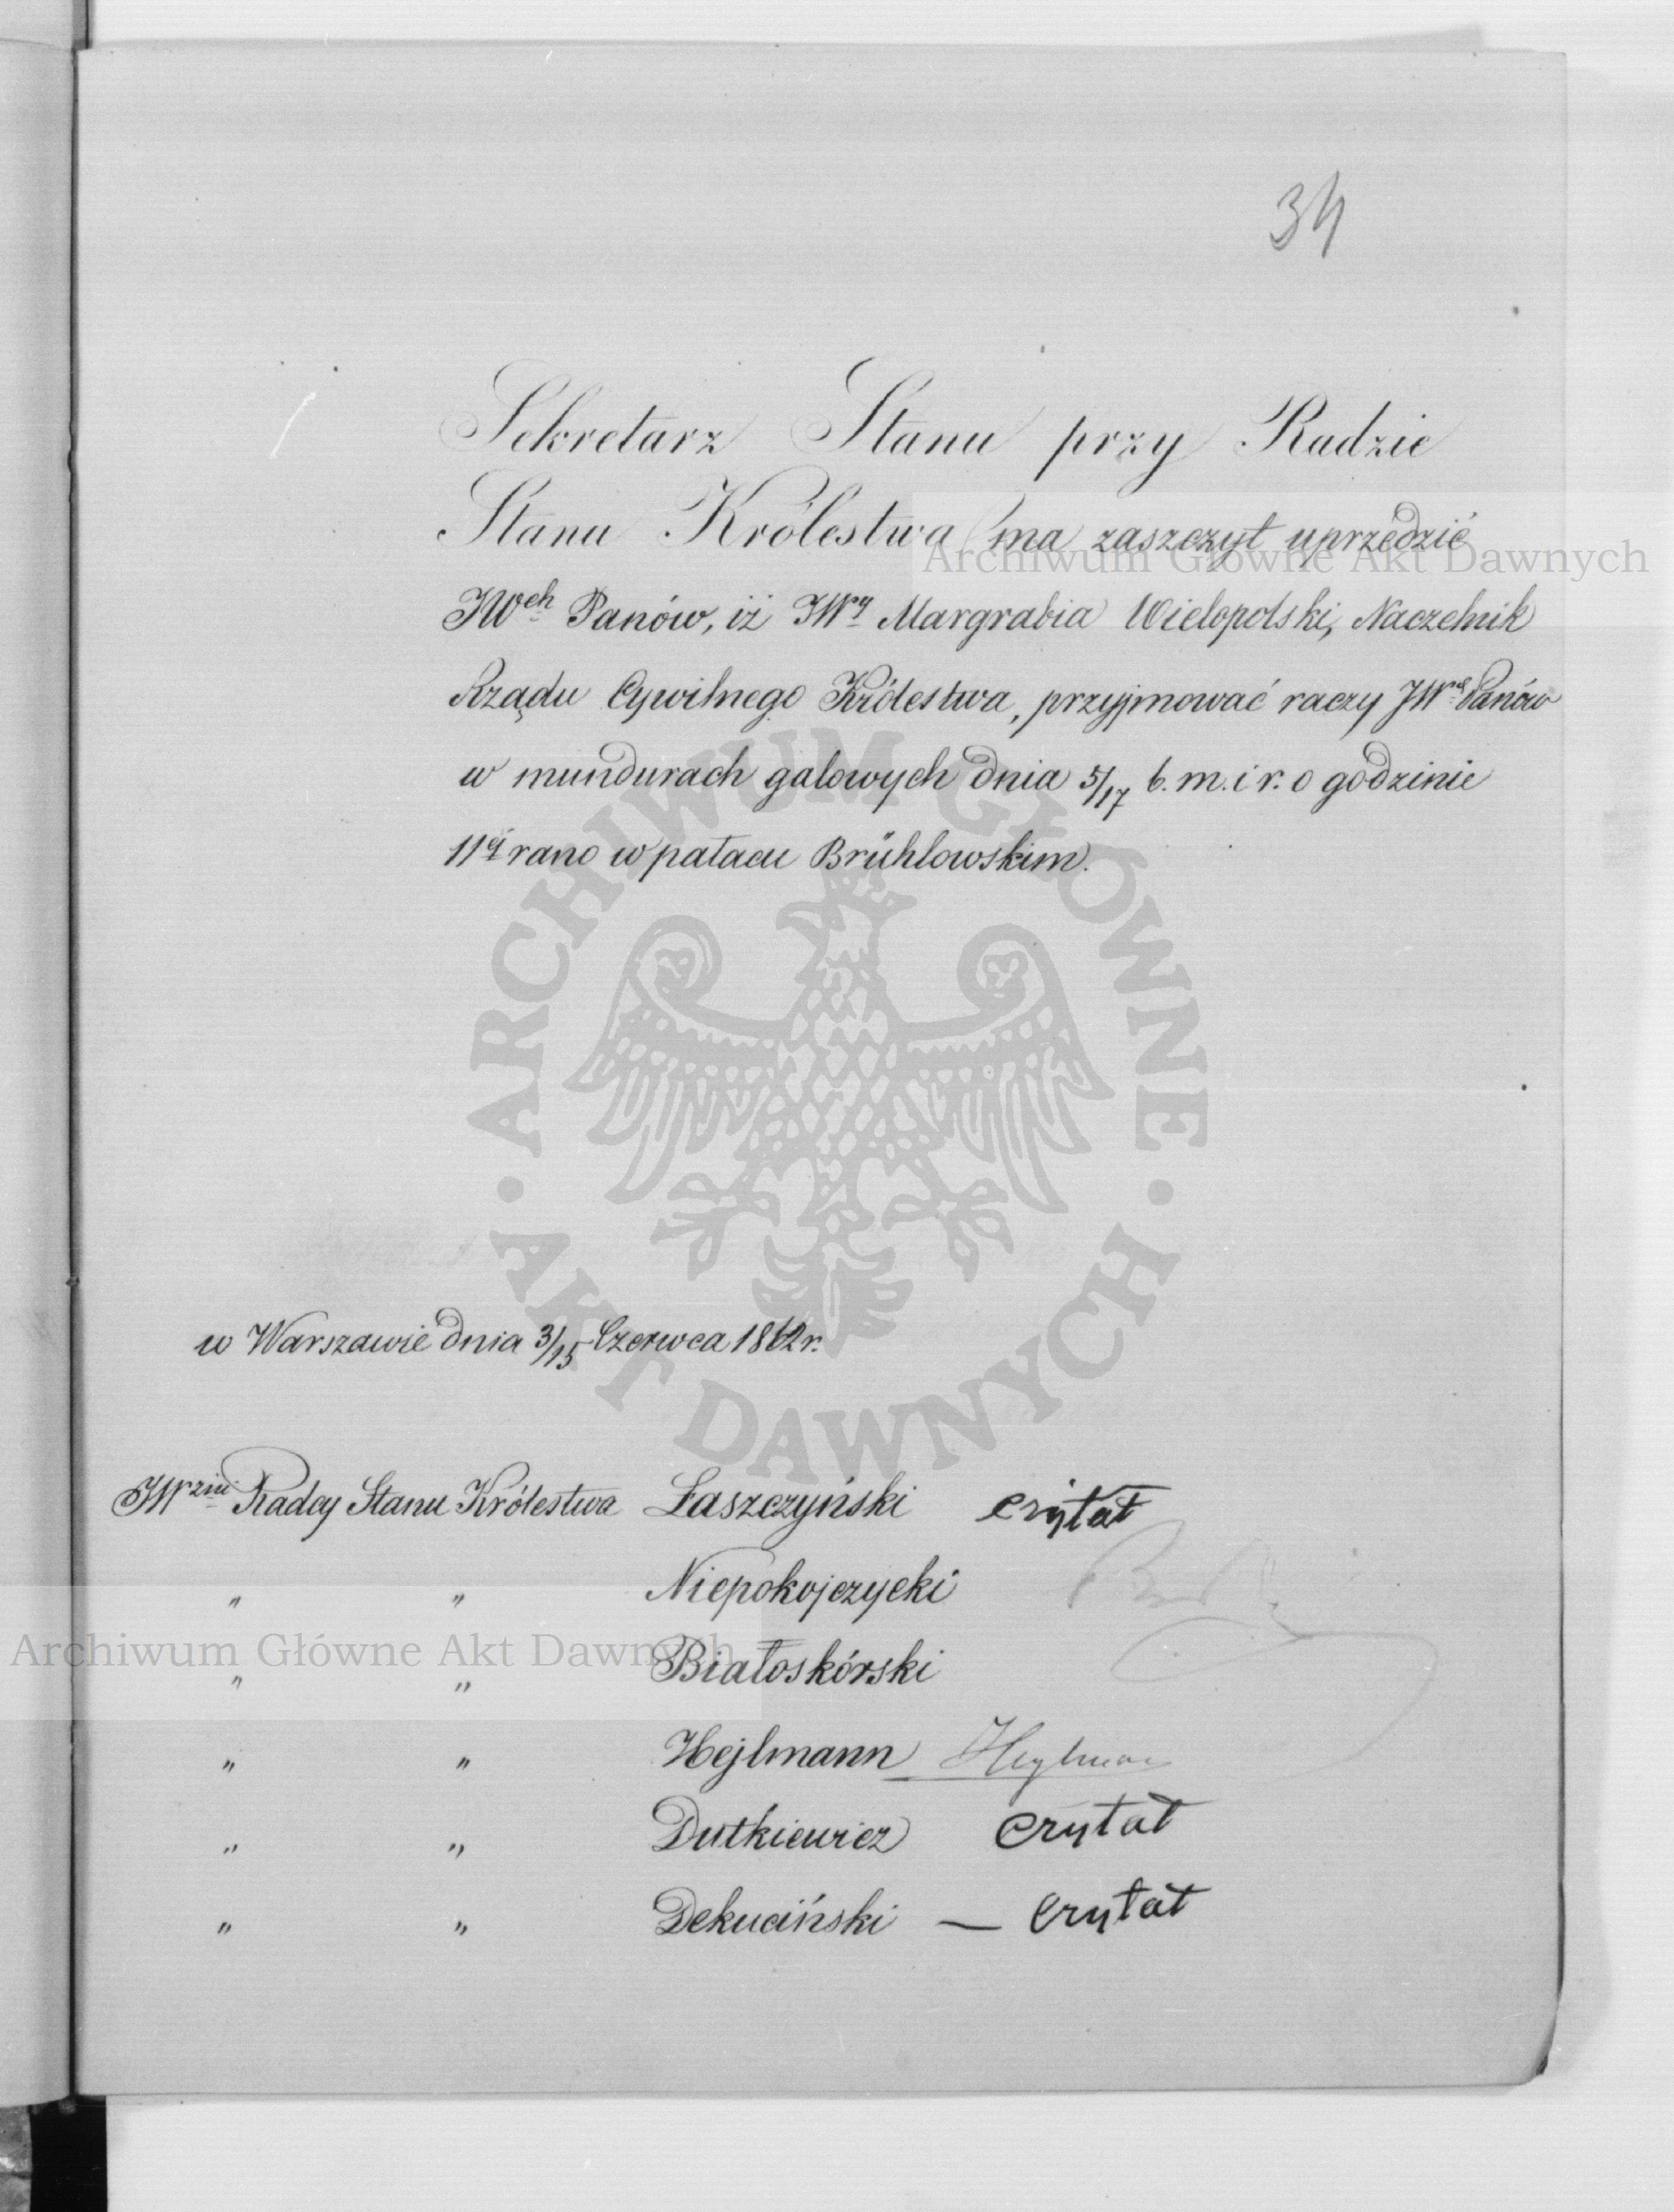 34
Sekretarz Stanu przy Radzie
Stanu Królestwa ma zaszczyt uprzedzić
JWch Panów, iż JWy Margrabia Wielopolski, Naczelnik
Rządu Cywilnego Królestwa, przyjmować raczy JW Panów
w mundurach galowych dnia 5/17 b. m. i r. o godzinie
11ej rano w pałacu Brühlowskim.
w Warszawie dnia 3/15 Czerwca 1862 r.
JWzni Radcy Stanu Królestwa Łaszczyński czytał
" " Niepokojczycki
" " Białoskórski
" " Hejlmann Heylman
" " Dutkiewicz czytał
" " Dekuciński — czytał
Archiwum Główne Akt Dawnych
Archiwum Główne Akt Dawnych
· ARCHIWUM GŁÓWNE · AKT DAWNYCH